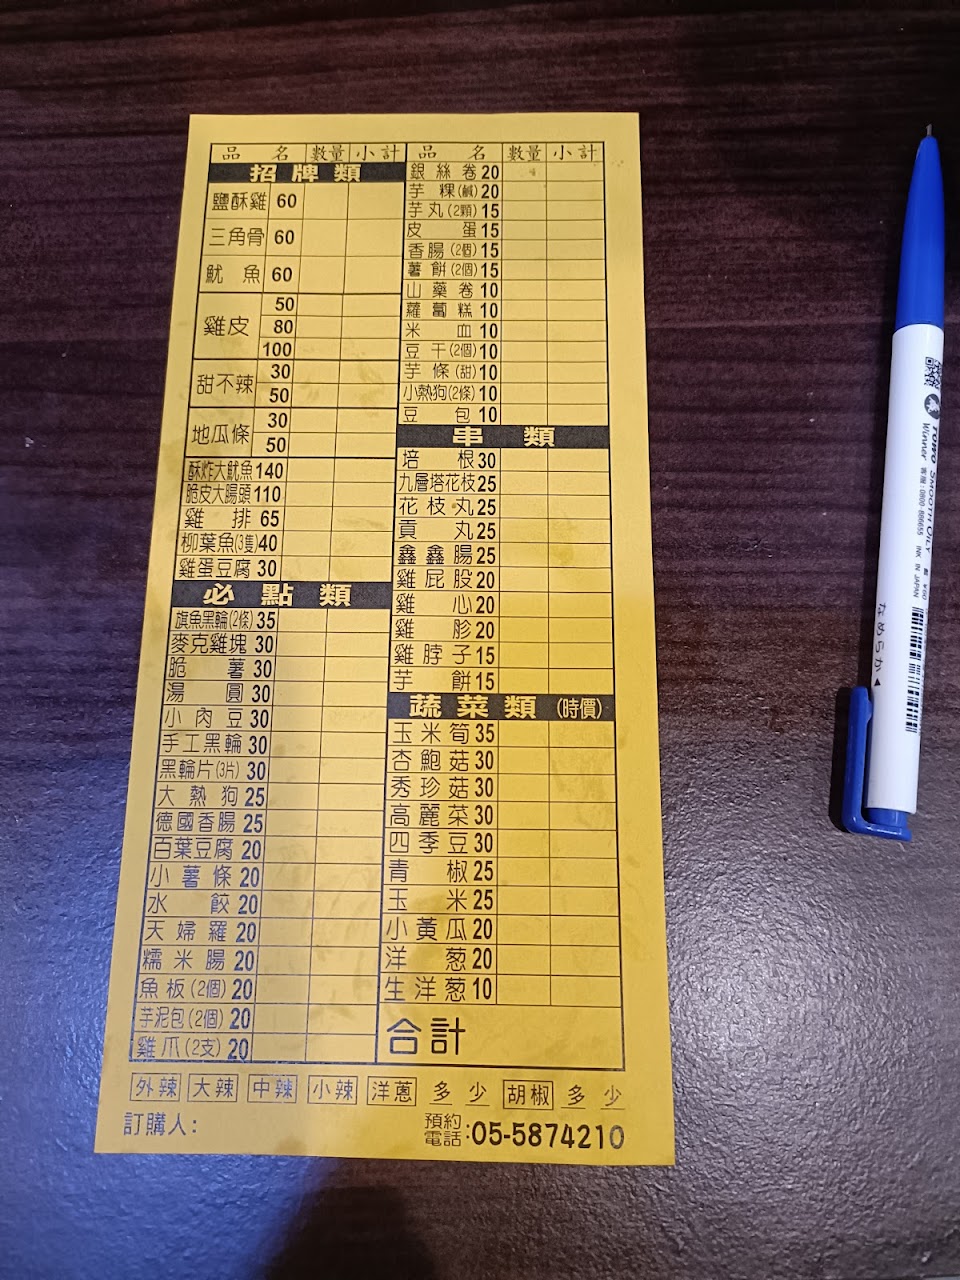 品名 數量 小計
招牌類
鹽酥雞 60
三角骨 60
魷魚 60
雞皮 50
80
100
甜不辣 30
50
地瓜條 30
50
酥炸大魷魚 140
脆皮大腸頭 110
雞排 65
柳葉魚(3隻) 40
雞蛋豆腐 30
必點類
旗魚黑輪(2條) 35
麥克雞塊 30
脆薯 30
湯圓 30
小肉豆 30
手工黑輪 30
黑輪片(3片) 30
大熱狗 25
德國香腸 25
百葉豆腐 20
小薯條 20
水餃 20
天婦羅 20
糯米腸 20
魚板(2個) 20
芋泥包(2個) 20
雞爪(2支) 20
品名 數量 小計
銀絲卷 20
芋粿(鹹) 20
芋丸(2顆) 15
皮蛋 15
香腸(2個) 15
薯餅(2個) 15
山藥卷 10
蘿蔔糕 10
米血 10
豆干(2個) 10
芋條(甜) 10
小熱狗(2條) 10
豆包 10
串類
培根 30
九層塔花枝 25
花枝丸 25
貢丸 25
鑫鑫腸 25
雞屁股 20
雞心 20
雞胗 20
雞脖子 15
芋餅 15
蔬菜類(時價)
玉米筍 35
杏鮑菇 30
秀珍菇 30
高麗菜 30
四季豆 30
青椒 25
玉米 25
小黃瓜 20
洋葱 20
生洋葱 10
合計
外辣 大辣 中辣 小辣 洋蔥 多 少 胡椒 多 少
訂購人:
預約電話:05-5874210
TOWO SMOOTH OILY
Winner 客服:0800-886655 INK IN JAPAN
なめらか